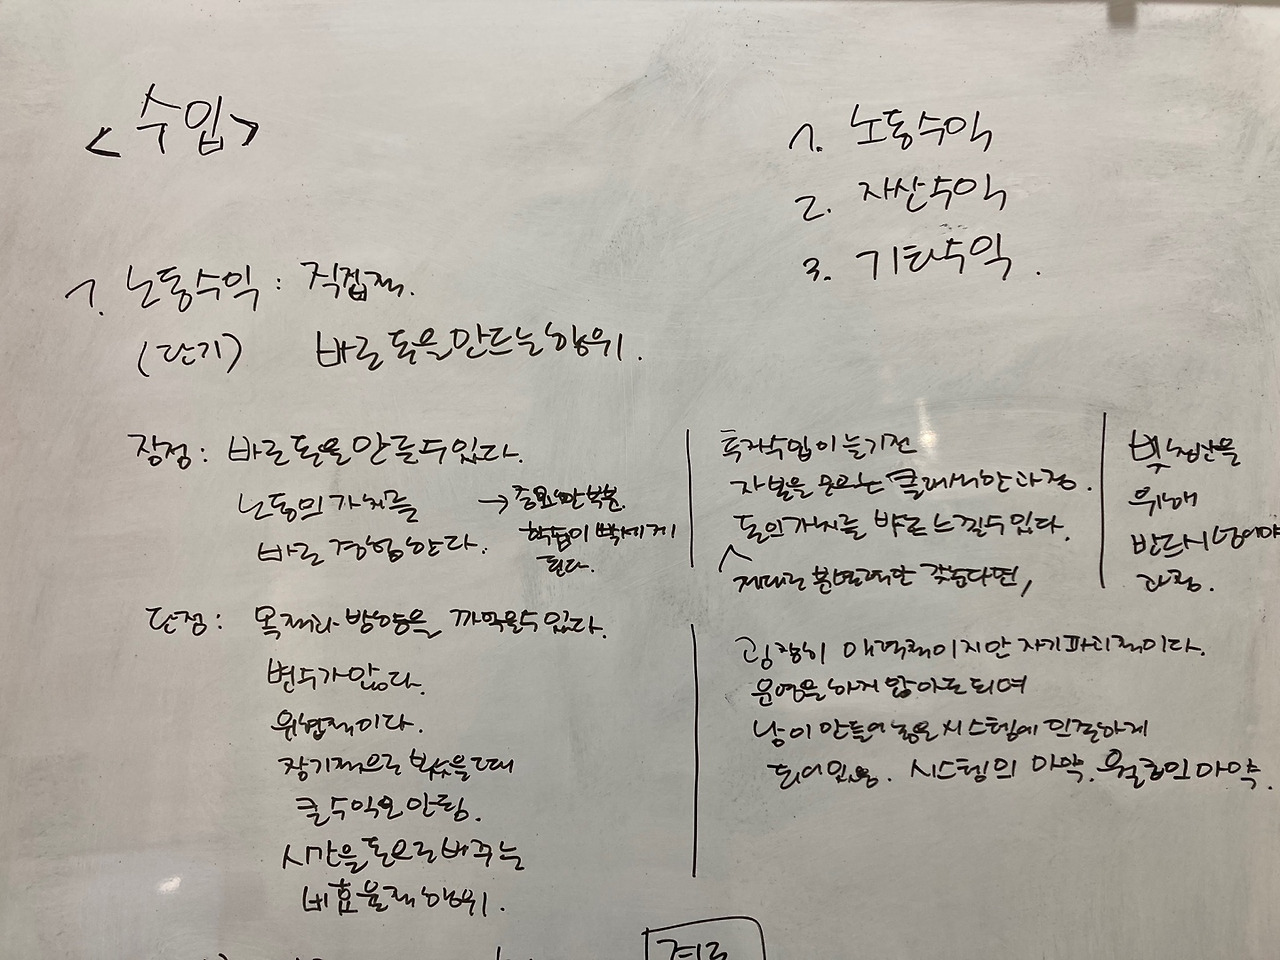 <수입>
1. 노동수익
2. 자산수익
3. 기타수익.
1. 노동수익 : 직접적.
(단기) 바로 돈을 만드는 행위.
장점: 바로 돈을 만들 수 있다.
노동의 가치를
바로 경험한다.
→ 중요한 부분.
학습이 빡세게
된다.
투자수입이 늘기 전
자본을 모으는 클래식한 과정.
돈의 가치를 바로 느낄 수 있다.
제대로 본연력만 갖춘다면,
빚 청산을
위해
반드시 넘어야
과정.
단점: 목적과 방향을 까먹을 수 있다.
변수가 많다.
위험적이다.
장기적으로 봤을 때
큰 수익은 안됨.
시간을 돈으로 바꾸는
비효율적 행위.
굉장히 매력적이지만 자기파괴적이다.
운영을 하지 않아도 되며
남이 만들어 놓은 시스템에 안전하게
되어있음. 시스템의 마약. 월급의 마약.